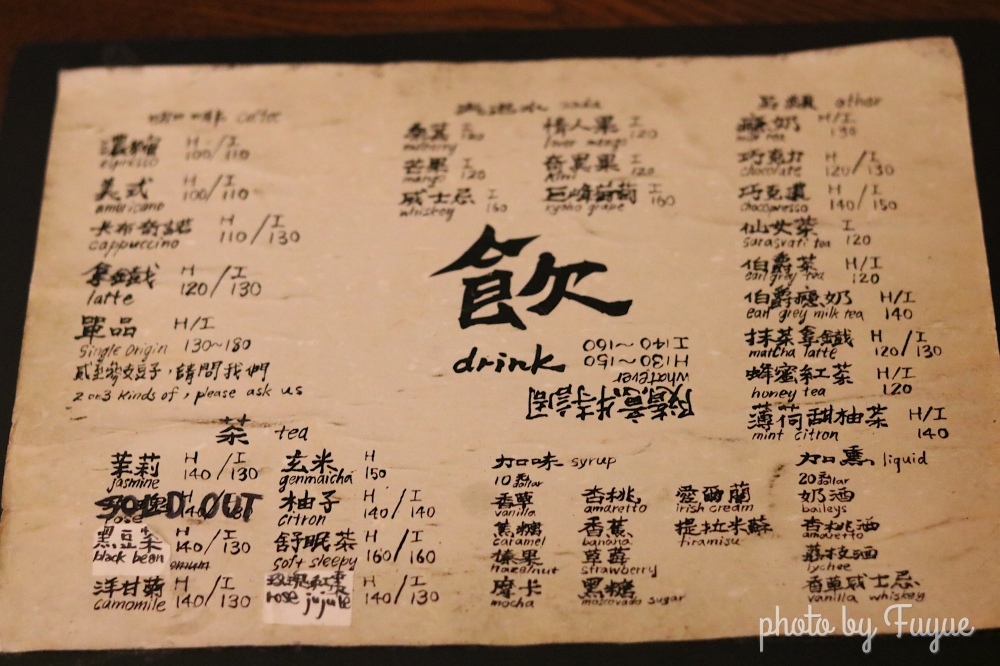 咖啡 coffee
濃縮 H / I
espresso 100/110
美式 H / I
americano 100/110
卡布奇諾 H / I
cappuccino 110/130
拿鐵 H / I
latte 120/130
單品 H/I
Single Origin 130~180
貳至參支豆子，請問我們
2 or 3 kinds of, please ask us
氣泡水 soda
桑葚 I
mulberry 120
情人果 I
lover mango 120
芒果 I
mango 120
奇異果 I
kiwi 120
威士忌 I
whiskey 160
巨峰葡萄 I
kyoho grape 160
飲
drink
隨意特調
whatever
H130~150
I140~160
另類 other
奶 H/I
130
巧克力 H / I
chocolate 120/130
巧克濃 H / I
chocopresso 140/150
仙女茶 I
sarasvati tea 120
伯爵茶 H/I
earl grey tea 120
伯爵奶 H/I
earl grey milk tea 140
抹茶拿鐵 H / I
matcha latte 120/130
蜂蜜紅茶 H/I
honey tea 120
薄荷甜柚茶 H/I
mint citron 140
茶 tea
茉莉 H / I
jasmine 140/130
SOLD OUT
rose
黑豆茶 H / I
black bean 140/130
洋甘菊 H / I
camomile 140/130
玄米 H
genmaicha 150
柚子 H / I
citron 140/140
舒眠茶 H / I
soft sleepy 160/160
玫瑰紅棗 H / I
rose jujube 140/130
加味 syrup
10 dollar
香草
vanilla
杏桃
amaretto
愛爾蘭
irish cream
焦糖
caramel
香蕉
banana
提拉米蘇
tiramisu
榛果
hazelnut
草莓
strawberry
摩卡
mocha
黑糖
moscovado sugar
加熏 liquid
20 dollar
奶酒
baileys
杏桃酒
amaretto
荔枝酒
lychee
香草威士忌
vanilla whiskey
photo by Fuyue